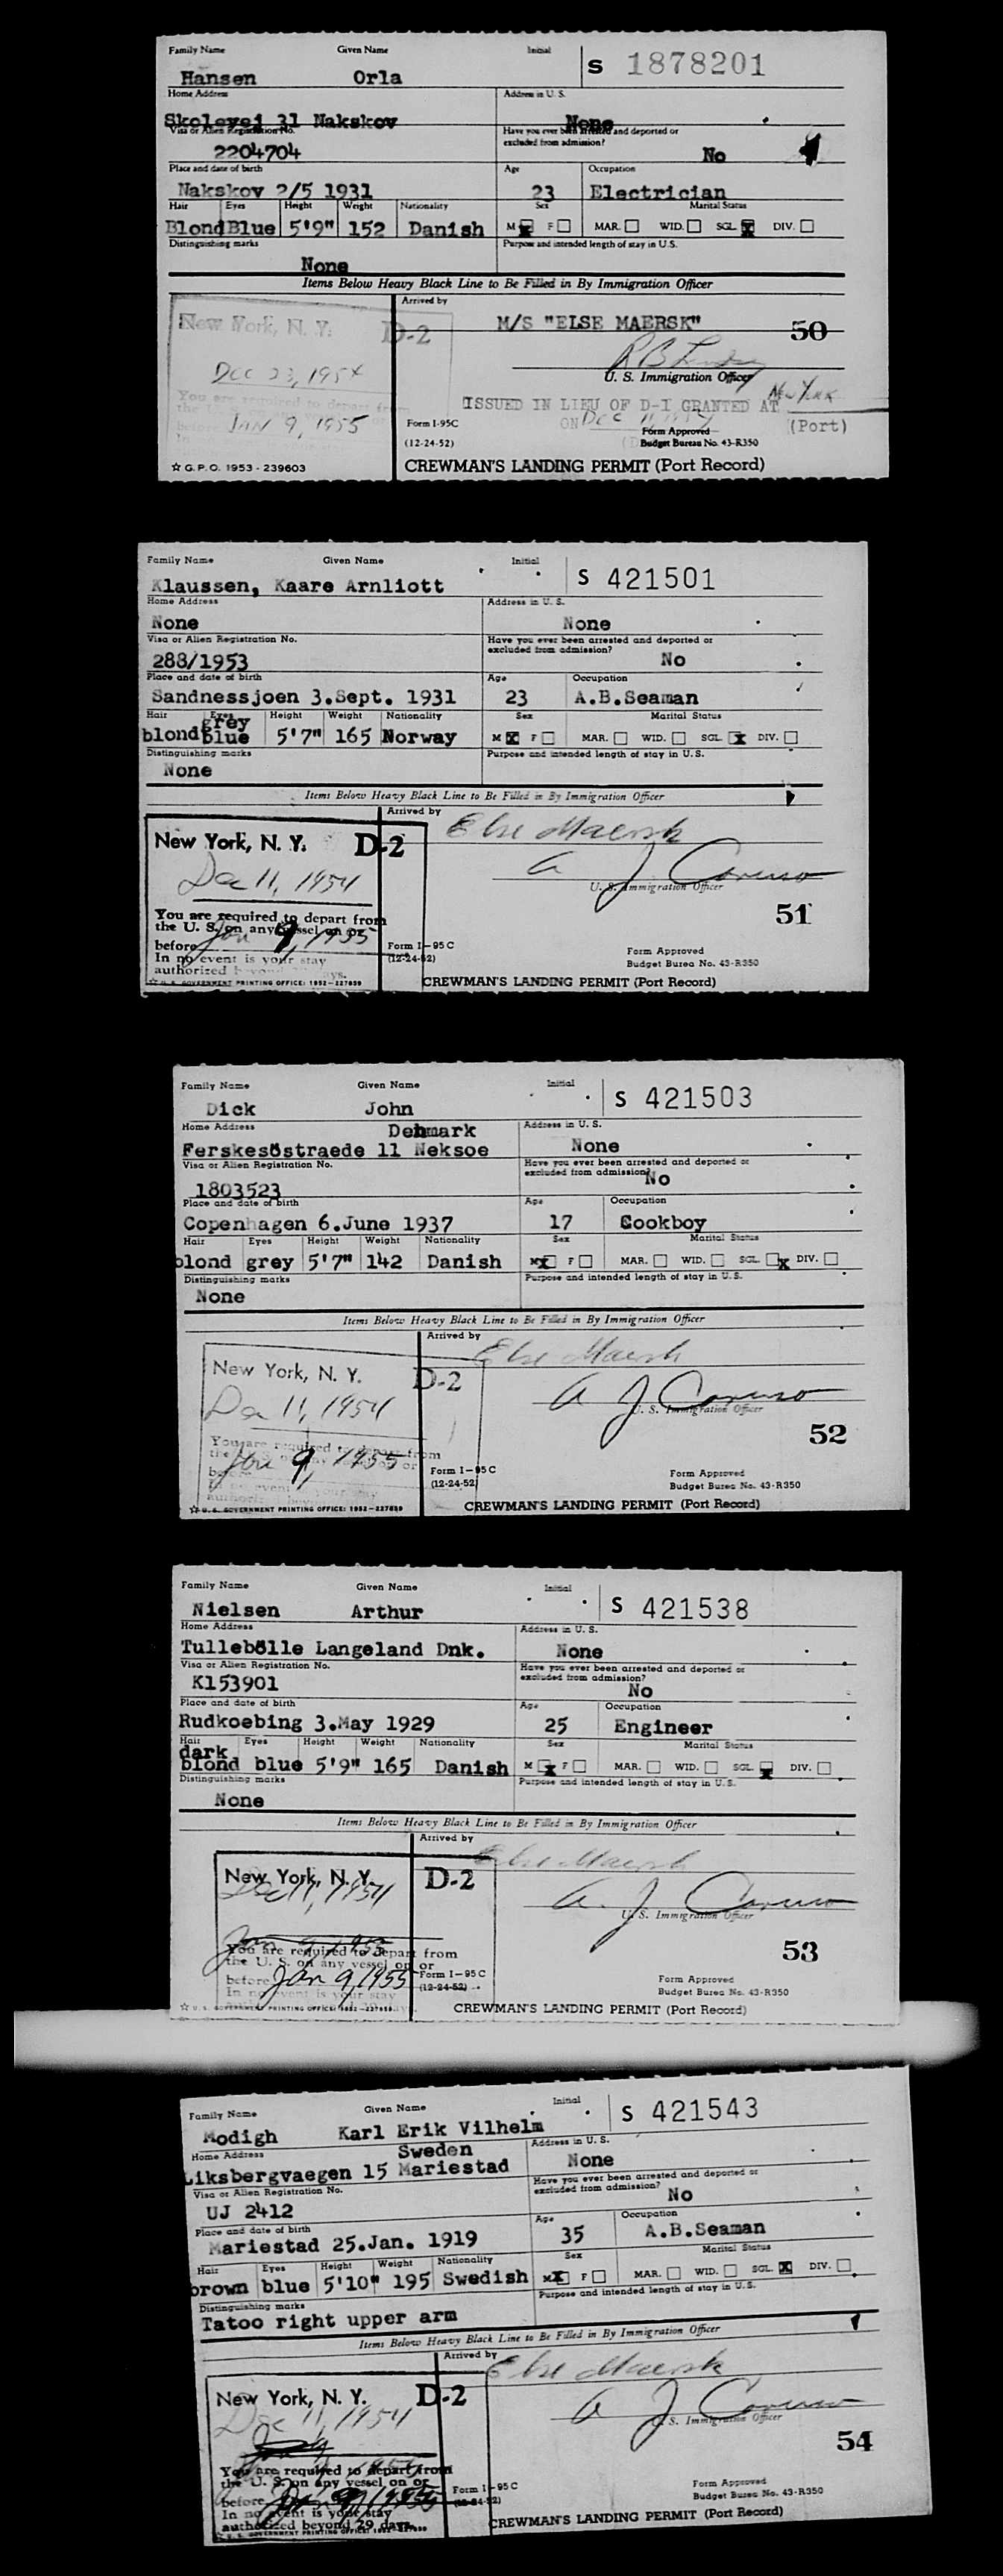 Family Name Given Name Initial
Hansen Orla S 1878201
Home Address Address in U.S.
Skolevej 31 Nakskov None
Visa or Alien Registration No. Have you ever been arrested and deported or excluded from admission?
2204704 No
Place and date of birth Age Occupation
Nakskov 2/5 1931 23 Electrician
Hair Eyes Height Weight Nationality Sex Marital Status
Blond Blue 5'9" 152 Danish M X F MAR. WID. SGL. X DIV.
Distinguishing marks Purpose and intended length of stay in U.S.
None
Items Below Heavy Black Line to Be Filled in By Immigration Officer
Arrived by
New York, N.Y. D-2 M/S "ELSE MAERSK" 50
Dec 23, 1954
U. S. Immigration Officer
You are required to depart from
ISSUED IN LIEU OF D-1 GRANTED AT New York
Jan 9, 1955 Form I-95C ON Dec 11 (Port)
(12-24-52) Form Approved
Budget Bureau No. 43-R350
☆ G.P.O. 1953-239603 CREWMAN'S LANDING PERMIT (Port Record)
Family Name Given Name Initial
Klaussen, Kaare Arnliott S 421501
Home Address Address in U.S.
None None
Visa or Alien Registration No. Have you ever been arrested and deported or excluded from admission?
288/1953 No
Place and date of birth Age Occupation
Sandnessjoen 3.Sept. 1931 23 A.B.Seaman
Hair Eyes Height Weight Nationality Sex Marital Status
blond grey blue 5'7" 165 Norway M X F MAR. WID. SGL. X DIV.
Distinguishing marks Purpose and intended length of stay in U.S.
None
Items Below Heavy Black Line to Be Filled in By Immigration Officer
Arrived by
New York, N. Y. D-2 Else Maersk
Dec 11, 1954 A J Caruso
U. S. Immigration Officer
You are required to depart from 51
the U. S. on any vessel on or
before Jan 9, 1955 Form I-95C Form Approved
In no event is your stay (12-24-52) Budget Bureau No. 43-R350
authorized beyond days.
☆ U. S. GOVERNMENT PRINTING OFFICE: 1952-227889 CREWMAN'S LANDING PERMIT (Port Record)
Family Name Given Name Initial
Dick John S 421503
Home Address Denmark Address in U.S.
Ferskesöstraede 11 Neksoe None
Visa or Alien Registration No. Have you ever been arrested and deported or excluded from admission?
1803523 No
Place and date of birth Age Occupation
Copenhagen 6.June 1937 17 Cookboy
Hair Eyes Height Weight Nationality Sex Marital Status
blond grey 5'7" 142 Danish M X F MAR. WID. SGL. X DIV.
Distinguishing marks Purpose and intended length of stay in U.S.
None
Items Below Heavy Black Line to Be Filled in By Immigration Officer
Arrived by
New York, N. Y. D-2 Else Maersk
Dec 11, 1954 A J Caruso
U. S. Immigration Officer
You are required to depart from 52
Jan 9, 1955 Form I-95C Form Approved
(12-24-52) Budget Bureau No. 43-R350
☆ U. S. GOVERNMENT PRINTING OFFICE: 1952-227889 CREWMAN'S LANDING PERMIT (Port Record)
Family Name Given Name Initial
Nielsen Arthur S 421538
Home Address Address in U.S.
Tullebölle Langeland Dnk. None
Visa or Alien Registration No. Have you ever been arrested and deported or excluded from admission?
K153901 No
Place and date of birth Age Occupation
Rudkoebing 3.May 1929 25 Engineer
Hair Eyes Height Weight Nationality Sex Marital Status
dark blond blue 5'9" 165 Danish M X F MAR. WID. SGL. X DIV.
Distinguishing marks Purpose and intended length of stay in U.S.
None
Items Below Heavy Black Line to Be Filled in By Immigration Officer
Arrived by
New York, N. Y. D-2 Else Maersk
Dec 11, 1954 A. J. Caruso
U. S. Immigration Officer
You are required to depart from 53
the U. S. on any vessel on or
before Jan 9, 1955 Form I-95C Form Approved
In no event is your stay (12-24-52) Budget Bureau No. 43-R350
☆ U. S. GOVERNMENT PRINTING OFFICE: 1952-227889 CREWMAN'S LANDING PERMIT (Port Record)
Family Name Given Name Initial
Modigh Karl Erik Vilhelm S 421543
Home Address Sweden Address in U.S.
Liksbergvaegen 15 Mariestad None
Visa or Alien Registration No. Have you ever been arrested and deported or excluded from admission?
UJ 2412 No
Place and date of birth Age Occupation
Mariestad 25.Jan. 1919 35 A.B.Seaman
Hair Eyes Height Weight Nationality Sex Marital Status
brown blue 5'10" 195 Swedish M X F MAR. WID. SGL. X DIV.
Distinguishing marks Purpose and intended length of stay in U.S.
Tatoo right upper arm
Items Below Heavy Black Line to Be Filled in By Immigration Officer
Arrived by
New York, N. Y. D-2 Else Maersk
Dec 11, 1954 A J Caruso
U. S. Immigration Officer
You are required to depart from 54
the U. S. on any vessel on or
before Form I-95C Form Approved
In no event is your stay (12-24-52) Budget Bureau No. 43-R350
authorized beyond 29 days.
CREWMAN'S LANDING PERMIT (Port Record)